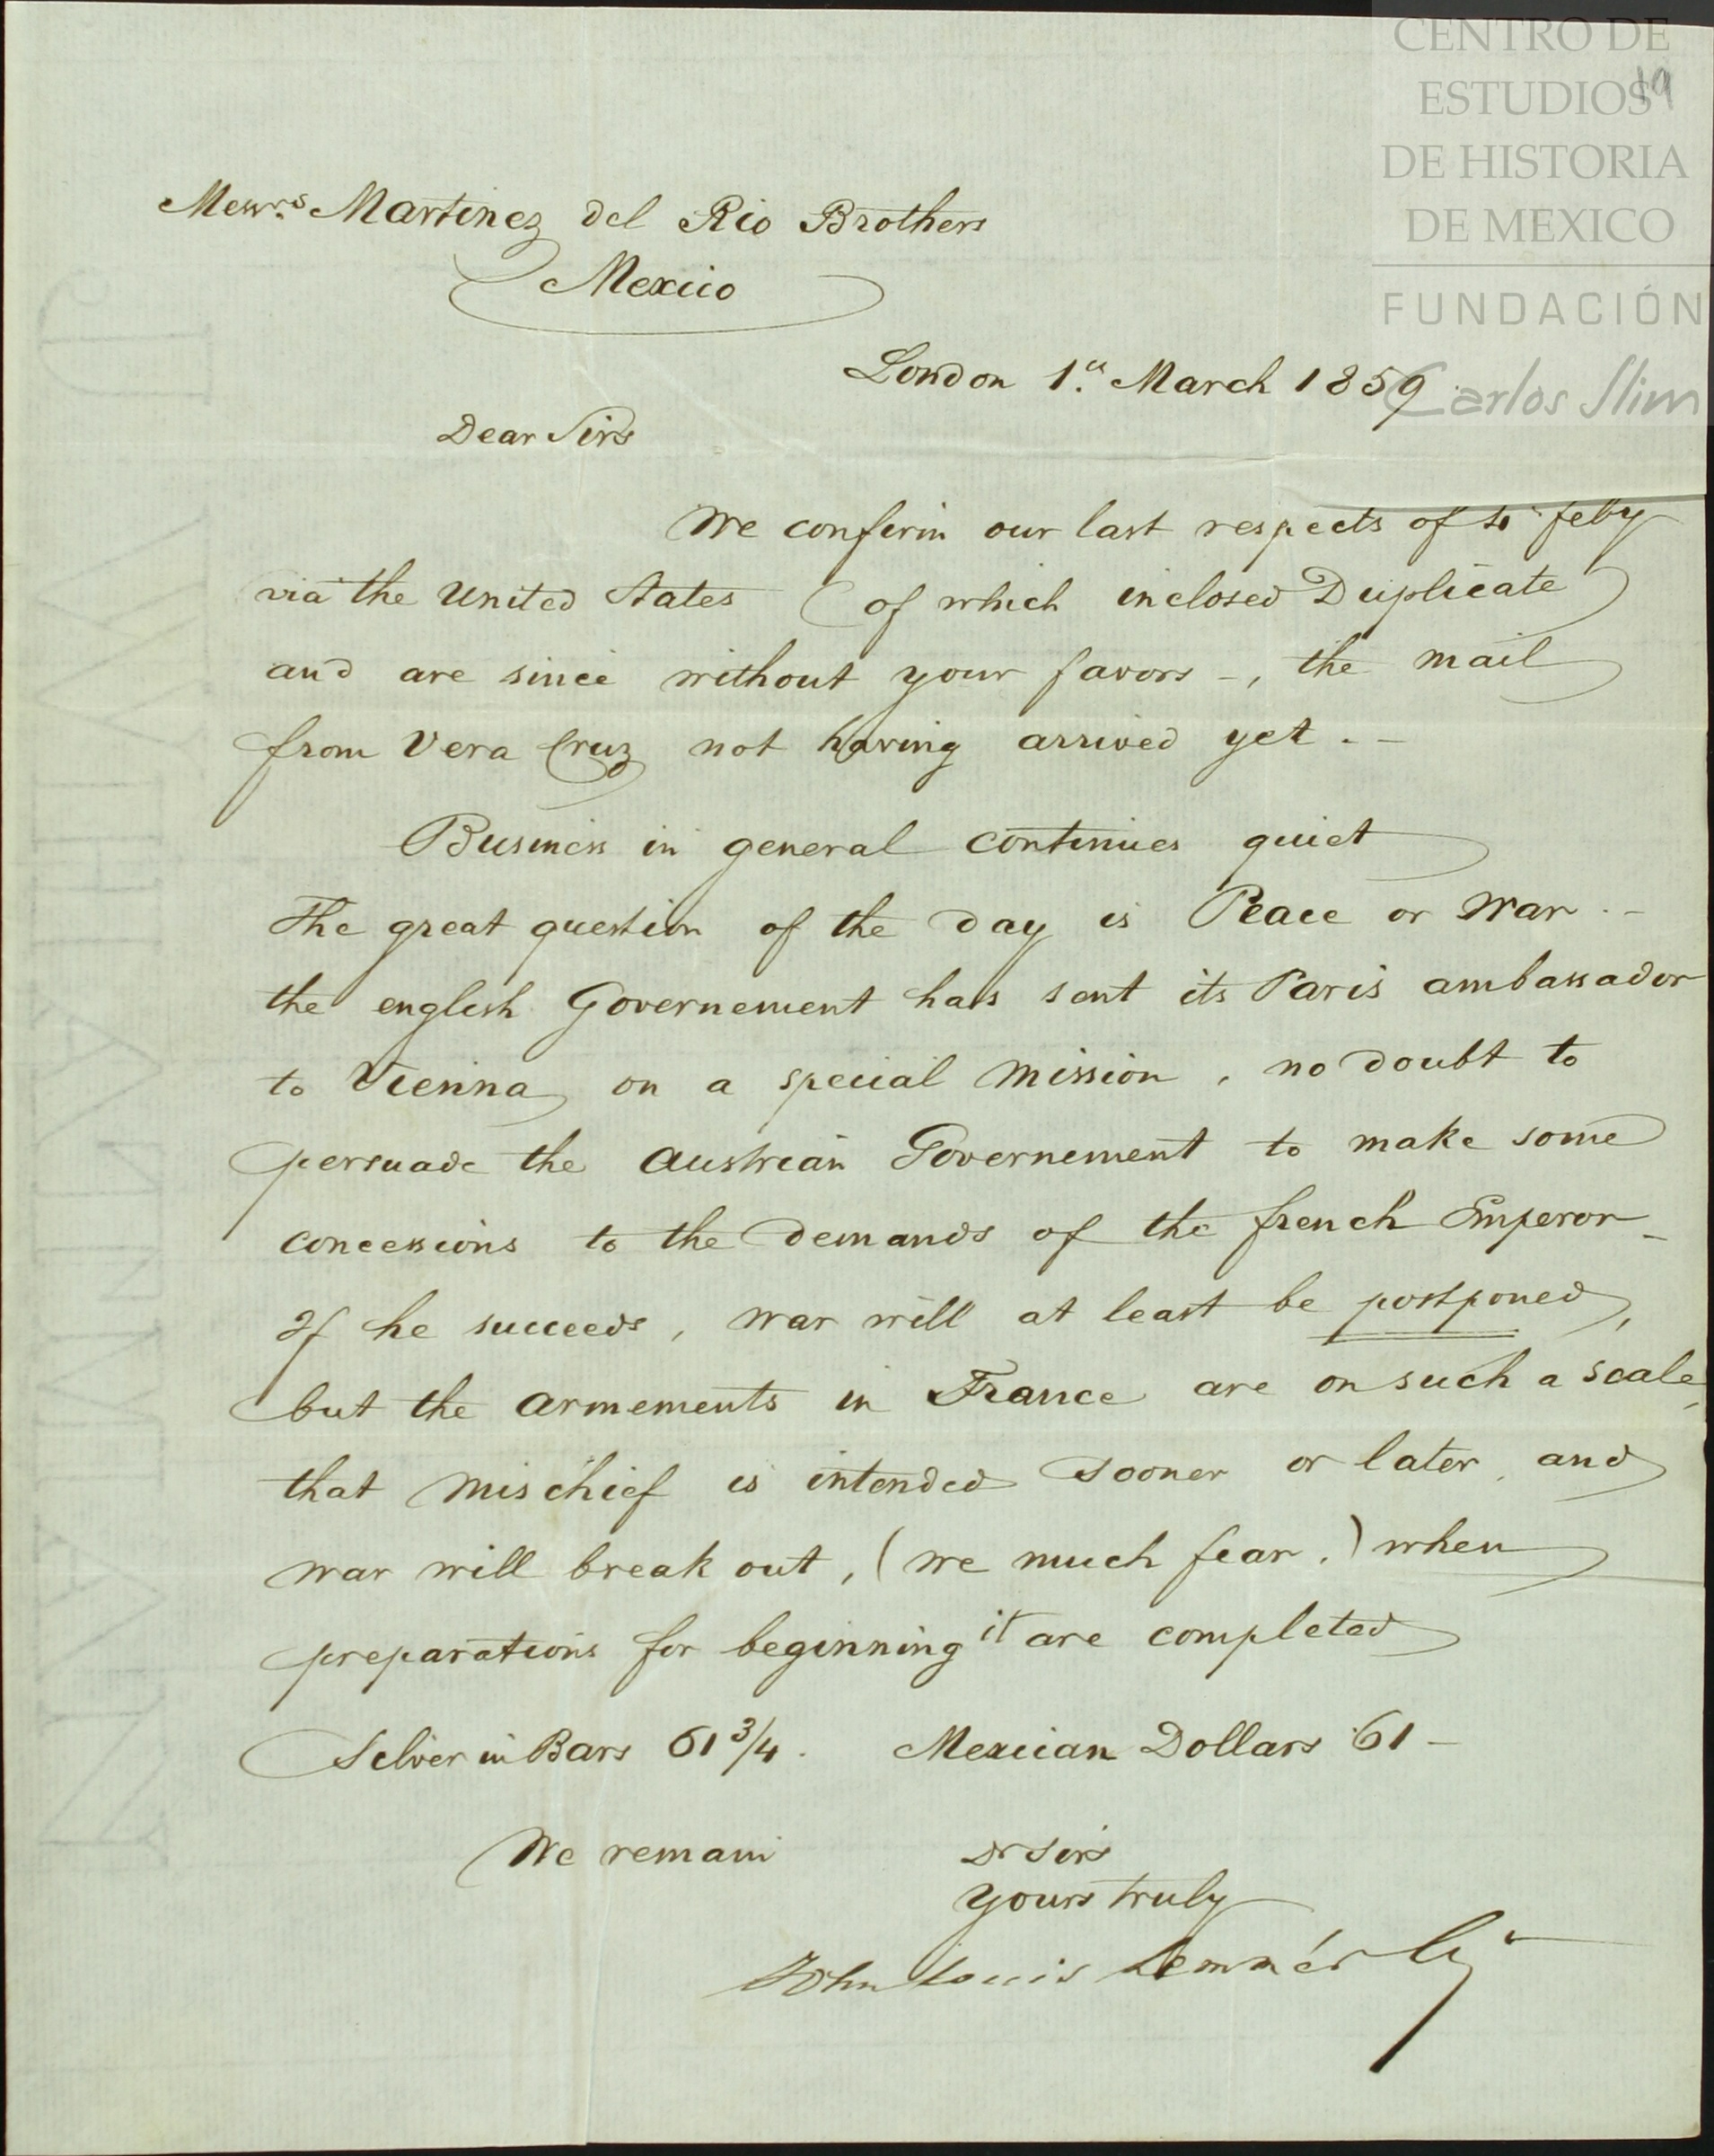 CENTRO DE
ESTUDIOS
DE HISTORIA
DE MEXICO
FUNDACIÓN
Carlos Slim
19
Messrs Martinez del Rio Brothers
Mexico
London 1. March 1859
Dear Sirs
We confirm our last respects of feby
via the United States (of which inclosed Duplicate)
and are since without your favors -, the mail
from Vera Cruz not having arrived yet . -
Business in general continues quiet
The great question of the day is Peace or War . -
the english Governement has sent its Paris ambassador
to Vienna on a special mission , no doubt to
persuade the Austrian Governement to make some
concessions to the Demands of the french Emperor -
If he succeeds , war will at least be postponed,
but the armements in France are on such a scale,
that mischief is intended sooner or later , and
war will break out , (we much fear ,) when
preparations for beginning it are completed
Silver in Bars 61 3/4 . Mexican Dollars 61 -
We remain Dr Sirs
Yours truly
John Louis Lemmé